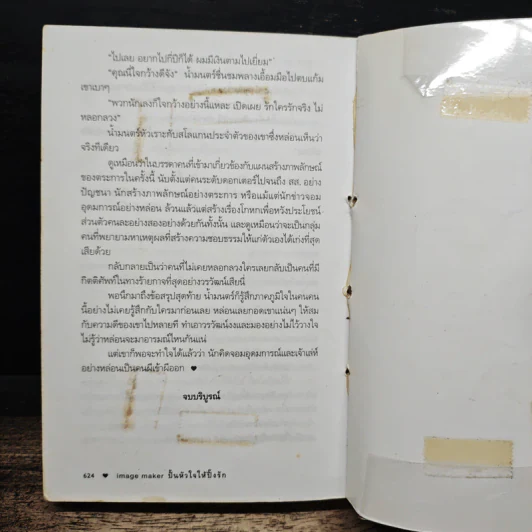 "ไปเลย อยากไปกี่ปีก็ได้ ผมมีเงินตามไปเยี่ยม"
"คุณนี่ใจกว้างดีจัง" น้ำมนตร์ชื่นชมพลางเอื้อมมือไปตบแก้ม
เขาเบาๆ
"พวกนักเลงก็ใจกว้างอย่างนี้แหละ เปิดเผย รักใครรักจริง ไม่
หลอกลวง"
น้ำมนตร์หัวเราะกับสโลแกนประจำตัวของเขาซึ่งหล่อนเห็นว่า
จริงทีเดียว
ดูเหมือนว่าในบรรดาคนที่เข้ามาเกี่ยวข้องกับแผนสร้างภาพลักษณ์
ของตระการในครั้งนี้ นับตั้งแต่คนระดับดอกเตอร์ไปจนถึง สส. อย่าง
ปัญชนา นักสร้างภาพลักษณ์อย่างตระการ หรือแม้แต่นักข่าวจอม
อุดมการณ์อย่างหล่อน ล้วนแล้วแต่สร้างเรื่องโกหกเพื่อหวังประโยชน์
ส่วนตัวคนละอย่างสองอย่างด้วยกันทั้งนั้น และดูเหมือนว่าจะเป็นกลุ่ม
คนที่พยายามหาเหตุผลที่สร้างความชอบธรรมให้แก่ตัวเองได้เก่งที่สุด
เสียด้วย
กลับกลายเป็นว่าคนที่ไม่เคยหลอกลวงใครเลยกลับเป็นคนที่มี
กิตติศัพท์ในทางร้ายกาจที่สุดอย่างวรวัฒน์เสียนี่
พอนึกมาถึงข้อสรุปสุดท้าย น้ำมนตร์ก็รู้สึกภาคภูมิใจในคนคน
นี้อย่างไม่เคยรู้สึกกับใครมาก่อนเลย หล่อนเลยกอดเขาแน่นๆ ให้สม
กับความดีของเขาไปหลายที ทำเอาวรวัฒน์งงและมองอย่างไม่ไว้วางใจ
ไม่รู้ว่าหล่อนจะมาอารมณ์ไหนกันแน่
แต่เขาก็พอจะทำใจได้แล้วว่า นักคิดจอมอุดมการณ์และเจ้าเล่ห์
อย่างหล่อนเป็นคนผีเข้าผีออก ♥
จบบริบูรณ์
624 ♥ image maker ปั้นหัวใจให้ปิ๊งรัก